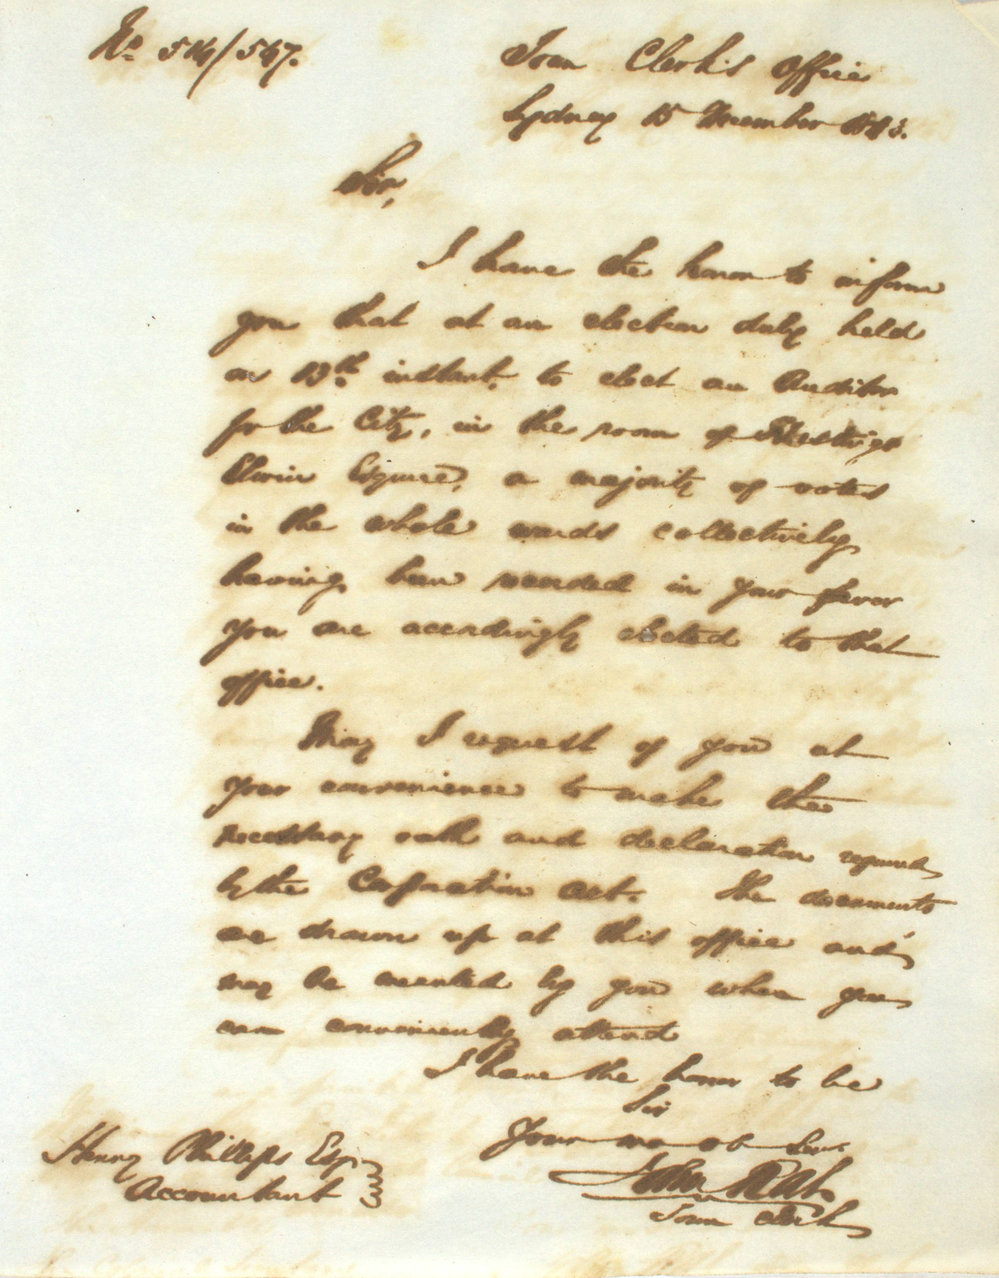 No. 514/547.
Town Clerk's Office
Sydney 15 November 1843.
Sir,
I have the honor to inform
you that at an election duly held
on 13th instant, to elect an Auditor
for the City, in the room of
Elwin Esquire, a majority of votes
in the whole wards collectively
having been recorded in your favor
you are accordingly elected to that
office.
May I request of you at
your convenience to make the
necessary oath and declaration required
by the Corporation Act. The documents
are drawn up at this office and
may be executed by you when you
can conveniently attend
I have the honor to be
Sir
Your mo ob Serv.
John Rae
Town Clerk
Henry Phillips Esq
Accountant